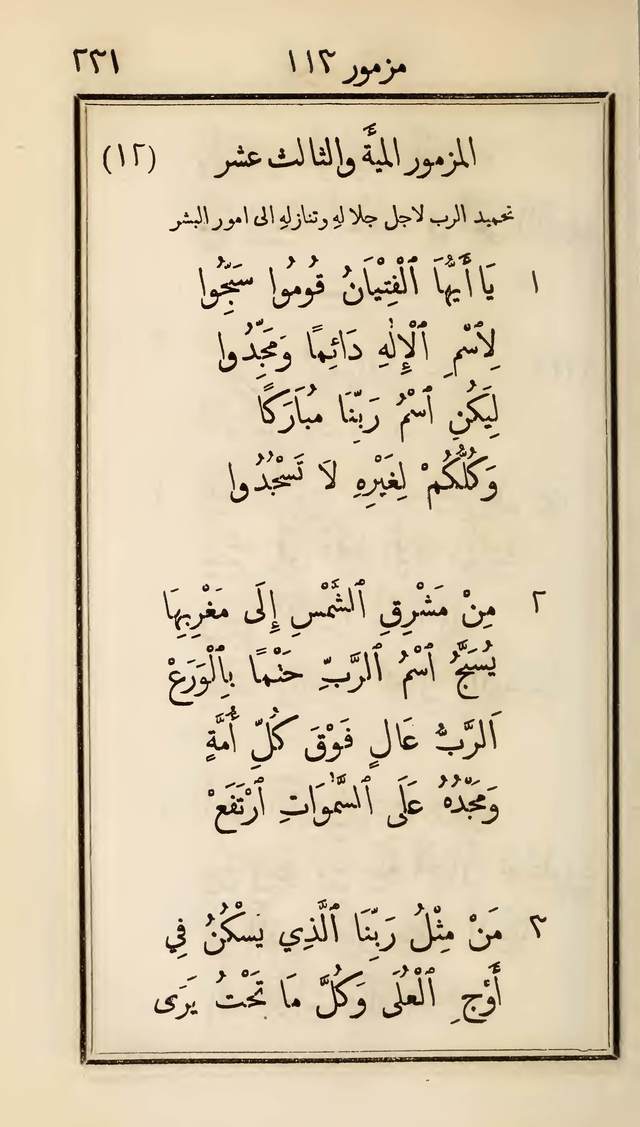 مزمور ١١٣ ٢٣١
المزمور الميةَّ والثالث عشر (١٢)
تحميد الرب لاجل جلالهِ وتنازلهِ الى امور البشر
١ يَا أَيُّهَا ٱلْفِتْيَانُ قُومُوا سَبِّحُوا
لِٱسْمِ ٱلْإِلٰهِ دَائِمًا وَمَجِّدُوا
لِيَكُنِ ٱسْمُ رَبِّنَا مُبَارَكًا
وَكُلُّكُمْ لِغَيْرِهِ لَا تَسْجُدُوا
٢ مِنْ مَشْرِقِ ٱلشَّمْسِ إِلَى مَغْرِبِهَا
يُسَبَّحُ ٱسْمُ ٱلرَّبِّ حَتْمًا بِٱلْوَرَعْ
اَلرَّبُّ عَالٍ فَوْقَ كُلِّ أُمَّةٍ
وَمَجْدُهُ عَلَى ٱلسَّمٰوَاتِ ٱرْتَفَعْ
٣ مَنْ مِثْلُ رَبِّنَا ٱلَّذِي يَسْكُنُ فِي
أَوْجِ ٱلْعُلَى وَكُلَّ مَا تَحْتُ يَرَى